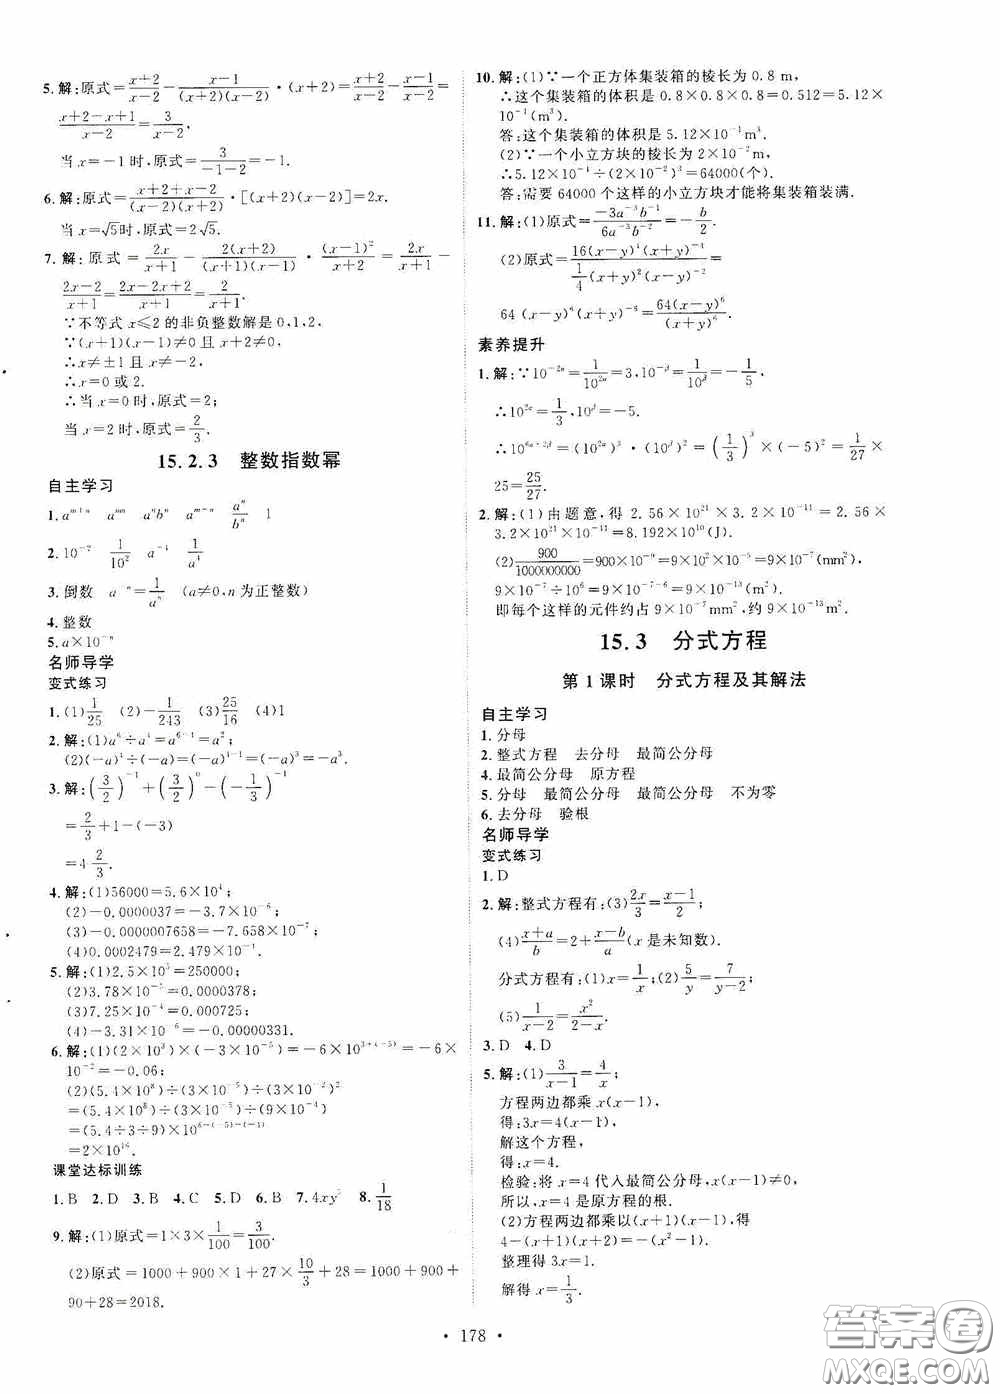 5. 解:原式=\frac{x+2}{x-2}-\frac{x-1}{(x+2)(x-2)}·(x+2)=\frac{x+2}{x-2}-\frac{x-1}{x-2}=
\frac{x+2-x+1}{x-2}=\frac{3}{x-2}.
当 x=-1 时,原式=\frac{3}{-1-2}=-1.
6. 解:原式=\frac{x+2+x-2}{(x-2)(x+2)}·[(x+2)(x-2)]=2x.
当 x=√5时,原式=2√5.
7. 解:原式=\frac{2x}{x+1}-\frac{2(x+2)}{(x+1)(x-1)}·\frac{(x-1)^2}{x+2}=\frac{2x}{x+1}-
\frac{2x-2}{x+1}=\frac{2x-2x+2}{x+1}=\frac{2}{x+1}.
∵不等式 x≤2 的非负整数解是 0,1,2,
∵(x+1)(x-1)≠0 且 x+2≠0,
∴x≠±1 且 x≠-2.
∴x=0 或 2.
∴当 x=0 时,原式=2;
当 x=2 时,原式=\frac{2}{3}.
15.2.3 整数指数幂
自主学习
1. a^{m+n} a^{mn} a^n b^n a^{m-n} \frac{a^n}{b^n} 1
2. 10^{-7} \frac{1}{10^2} a^{-4} \frac{1}{a^4}
3. 倒数 a^{-n}=\frac{1}{a^n} (a≠0,n 为正整数)
4. 整数
5. a×10^{-n}
名师导学
变式练习
1. (1)\frac{1}{25} (2)-\frac{1}{243} (3)\frac{25}{16} (4)1
2. 解:(1)a^6÷a^4=a^{6-4}=a^2;
(2)(-a)^4÷(-a)=(-a)^{4-1}=(-a)^3=-a^3.
3. 解:(\frac{3}{2})^{-1}+(\frac{3}{2})^0-(-\frac{1}{3})^{-1}
=\frac{2}{3}+1-(-3)
=4\frac{2}{3}.
4. 解:(1)56000=5.6×10^4;
(2)-0.0000037=-3.7×10^{-6};
(3)-0.0000007658=-7.658×10^{-7};
(4)0.0002479=2.479×10^{-4}.
5. 解:(1)2.5×10^5=250000;
(2)3.78×10^{-5}=0.0000378;
(3)7.25×10^{-4}=0.000725;
(4)-3.31×10^{-6}=-0.00000331.
6. 解:(1)(2×10^3)×(-3×10^{-5})=-6×10^{3+(-5)}=-6×
10^{-2}=-0.06;
(2)(5.4×10^8)÷(3×10^{-5})÷(3×10^{-2})^2
=(5.4×10^8)÷(3×10^{-5})÷(9×10^{-4})
=(5.4÷3÷9)×10^{8-(-5)-(-4)}
=2×10^{16}.
课堂达标训练
1. B 2. D 3. B 4. C 5. D 6. B 7. 4xy^2 8. \frac{1}{18}
9. 解:(1)原式=1×3×\frac{1}{100}=\frac{3}{100}.
(2)原式=1000+900×1+27×\frac{10}{3}+28=1000+900+
90+28=2018.
10. 解:(1)∵一个正方体集装箱的棱长为 0.8 m,
∴这个集装箱的体积是 0.8×0.8×0.8=0.512=5.12×
10^{-1}(m^3).
答:这个集装箱的体积是 5.12×10^{-1}m^3.
(2)∵一个小立方块的棱长为 2×10^{-2}m,
∴5.12×10^{-1}÷(2×10^{-2})^3=64000(个).
答:需要 64000 个这样的小立方块才能将集装箱装满.
11. 解:(1)原式=\frac{-3a^{-3}b^{-1}}{6a^{-3}b^{-2}}=-\frac{b}{2}.
(2)原式=\frac{16(x-y)^4(x+y)^{-4}}{\frac{1}{4}(x+y)^2(x-y)^{-2}}=
64(x-y)^6(x+y)^{-6}=\frac{64(x-y)^6}{(x+y)^6}.
素养提升
1. 解:∵10^{-2α}=\frac{1}{10^{2α}}=3,10^{-β}=\frac{1}{10^β}=-\frac{1}{5},
∴10^{2α}=\frac{1}{3},10^β=-5.
∴10^{6α+2β}=(10^{2α})^3·(10^β)^2=(\frac{1}{3})^3×(-5)^2=\frac{1}{27}×
25=\frac{25}{27}.
2. 解:(1)由题意,得 2.56×10^{21}×3.2×10^{-11}=2.56×
3.2×10^{21}×10^{-11}=8.192×10^{10}(J).
(2)\frac{900}{1000000000}=900×10^{-9}=9×10^2×10^{-9}=9×10^{-7}(mm^2),
9×10^{-7}÷10^6=9×10^{-7-6}=9×10^{-13}(m^2).
即每个这样的元件约占 9×10^{-7}mm^2,约 9×10^{-13}m^2.
15.3 分式方程
第 1 课时 分式方程及其解法
自主学习
1. 分母
2. 整式方程 去分母 最简公分母
4. 最简公分母 原方程
5. 分母 最简公分母 最简公分母 不为零
6. 去分母 验根
名师导学
变式练习
1. D
2. 解:整式方程有:(3)\frac{2x}{3}=\frac{x-1}{2};
(4)\frac{x+a}{b}=2+\frac{x-b}{a}(x 是未知数).
分式方程有:(1)x=\frac{1}{x};(2)\frac{5}{y}=\frac{7}{y-2};
(5)\frac{1}{x-2}=\frac{x^2}{2-x}.
3. D 4. D
5. 解:(1)\frac{3}{x-1}=\frac{4}{x};
方程两边都乘 x(x-1),
得:3x=4(x-1),
解这个方程,
得:x=4.
检验:将 x=4 代入最简公分母,x(x-1)≠0,
所以,x=4 是原方程的根.
(2)方程两边都乘以(x+1)(x-1),得
4-(x+1)(x+2)=-(x^2-1).
整理得 3x=1.
解得 x=\frac{1}{3}.
· 178 ·
答案圈
MXQE.COM